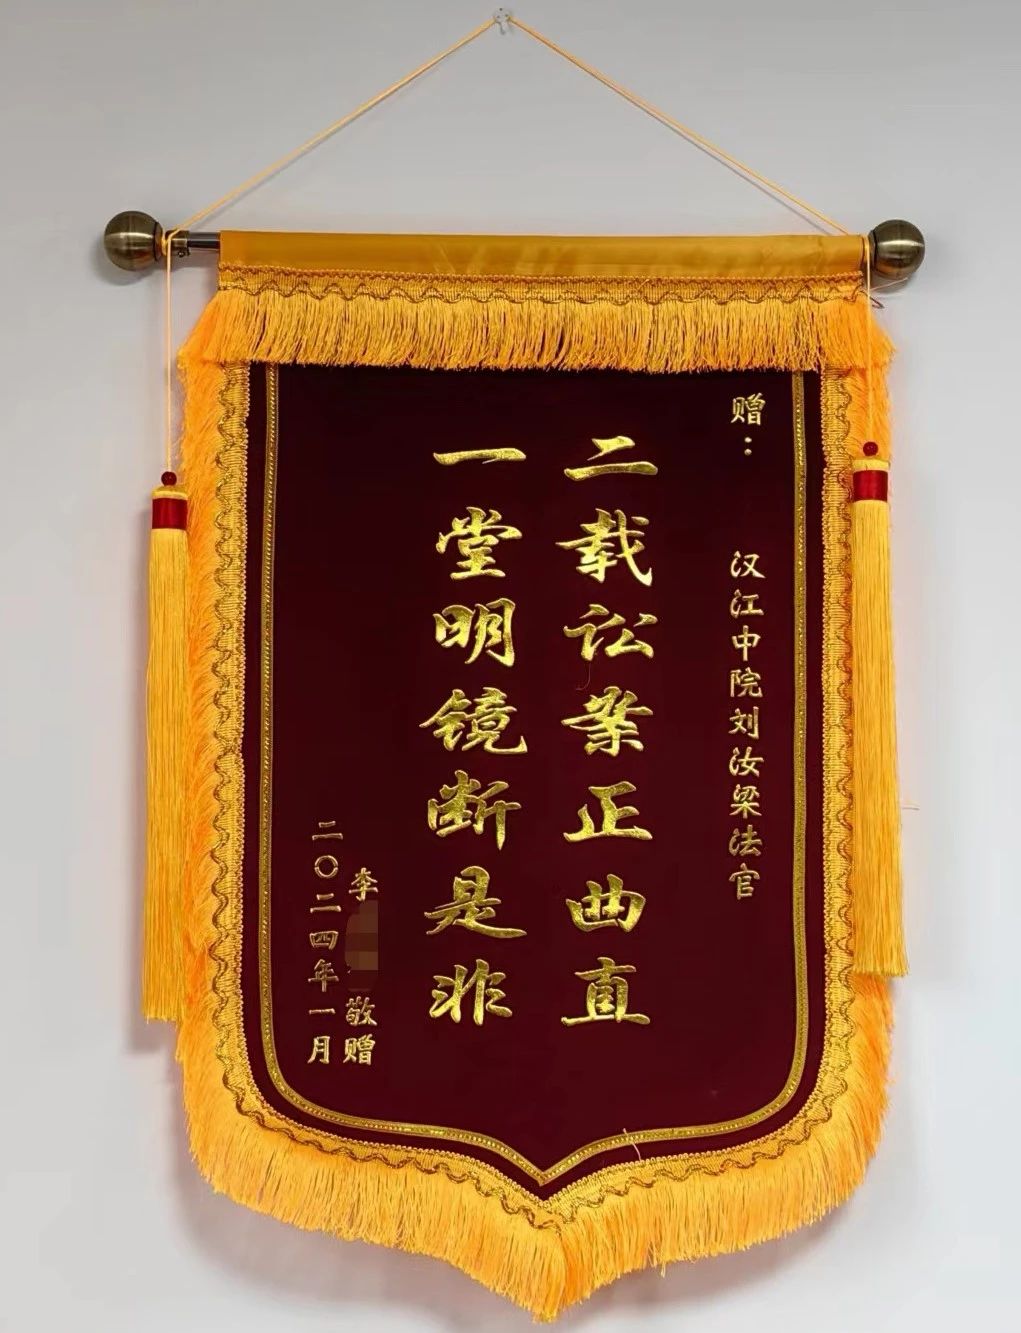 赠：
汉江中院刘汝梁法官
二载讼案正曲直
一堂明镜断是非
李 敬赠
二〇二四年一月